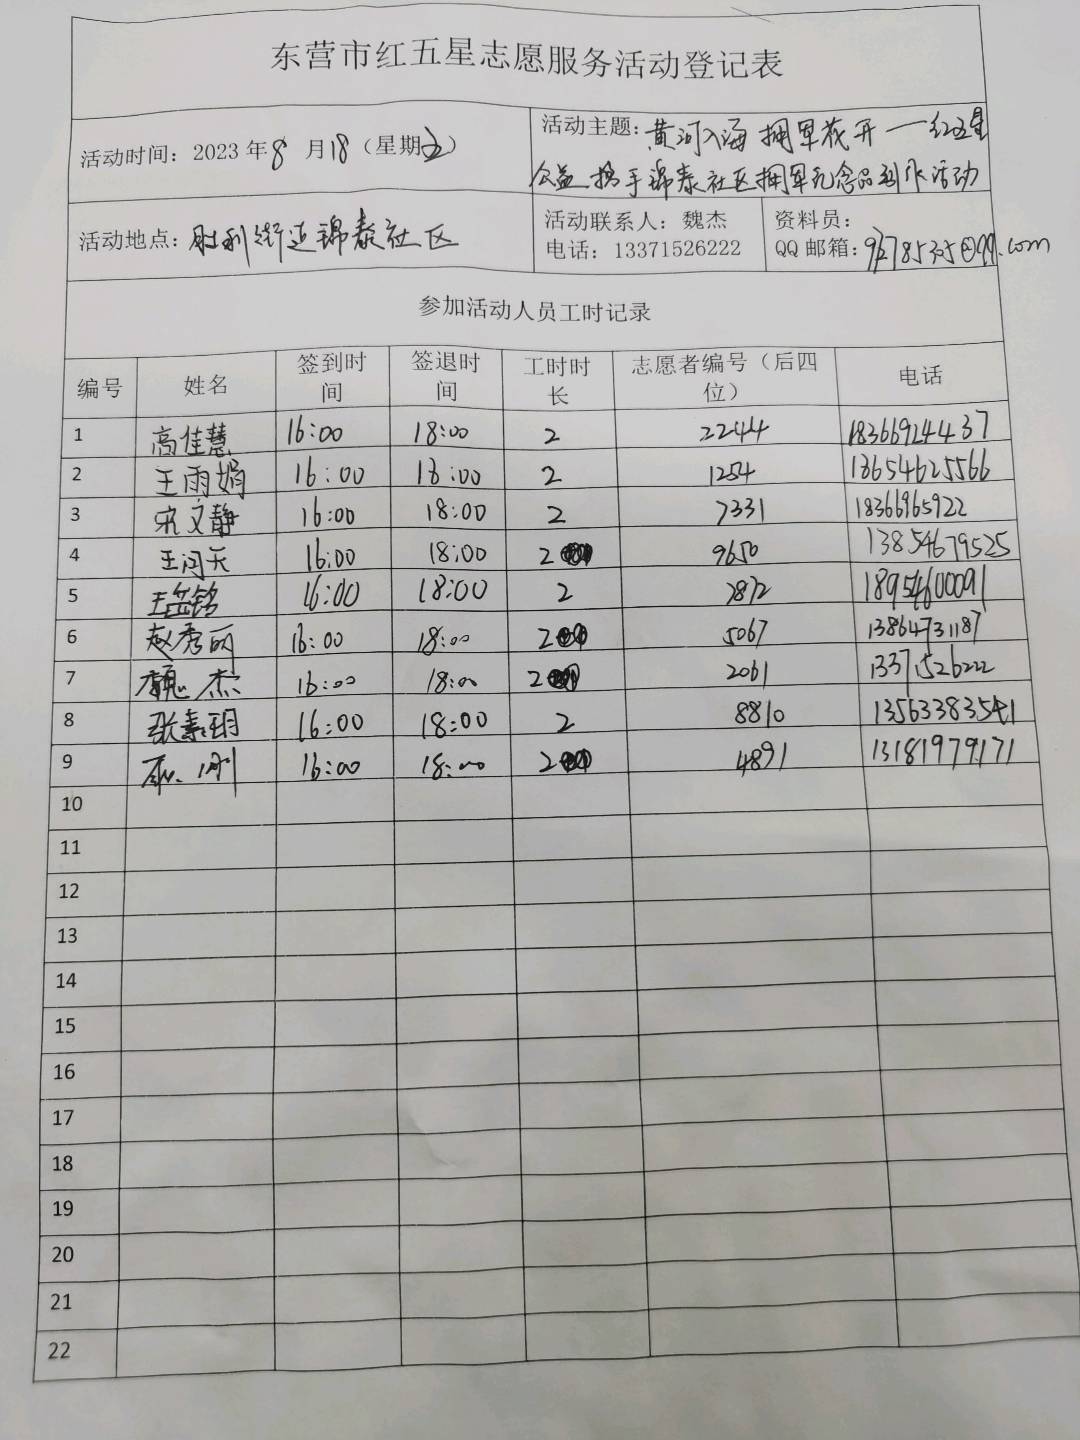 东营市红五星志愿服务活动登记表
活动时间：2023年8月18（星期五）
活动主题：黄河入海 拥军花开——红五星
公益携手锦泰社区拥军纪念品制作活动
活动地点：胜利街道锦泰社区
活动联系人：魏杰
电话：13371526222
资料员：
QQ邮箱：@qq.com
参加活动人员工时记录
编号 姓名 签到时间 签退时间 工时时长 志愿者编号（后四位） 电话
1 高佳慧 16:00 18:00 2 2244 18366924437
2 王雨娟 16:00 18:00 2 1254 18654625566
3 宋文静 16:00 18:00 2 7331 18366965922
4 王闯天 16:00 18:00 2 9650 13854679525
5 王岳铭 16:00 18:00 2 18954600091
6 赵秀丽 16:00 18:00 2 5067 13864731187
7 魏杰 16:00 18:00 2 2061 13371526222
8 张素玥 16:00 18:00 2 8810 13563383541
9 16:00 18:00 2 4891 13181979171
10
11
12
13
14
15
16
17
18
19
20
21
22